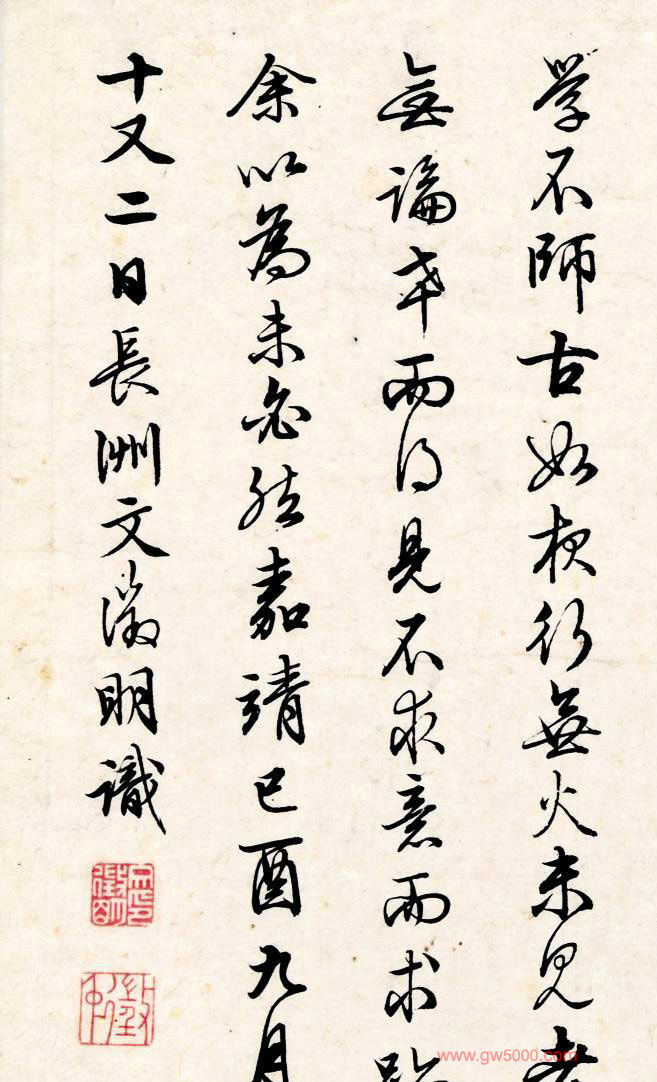 学不師古如夜行無火未見者
無論幸而得見不求意而求跡
余以為未必然嘉靖己酉九月
十又二日長洲文徵明識
www.gw5000.com